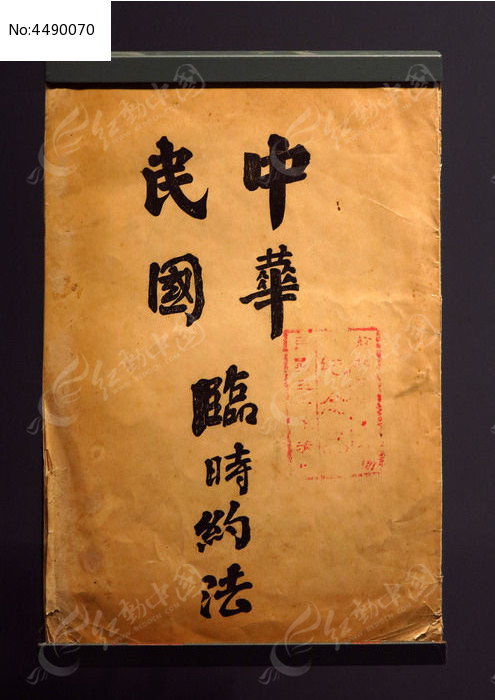 No:4490070
中華
民國
臨時約法
紅動中国